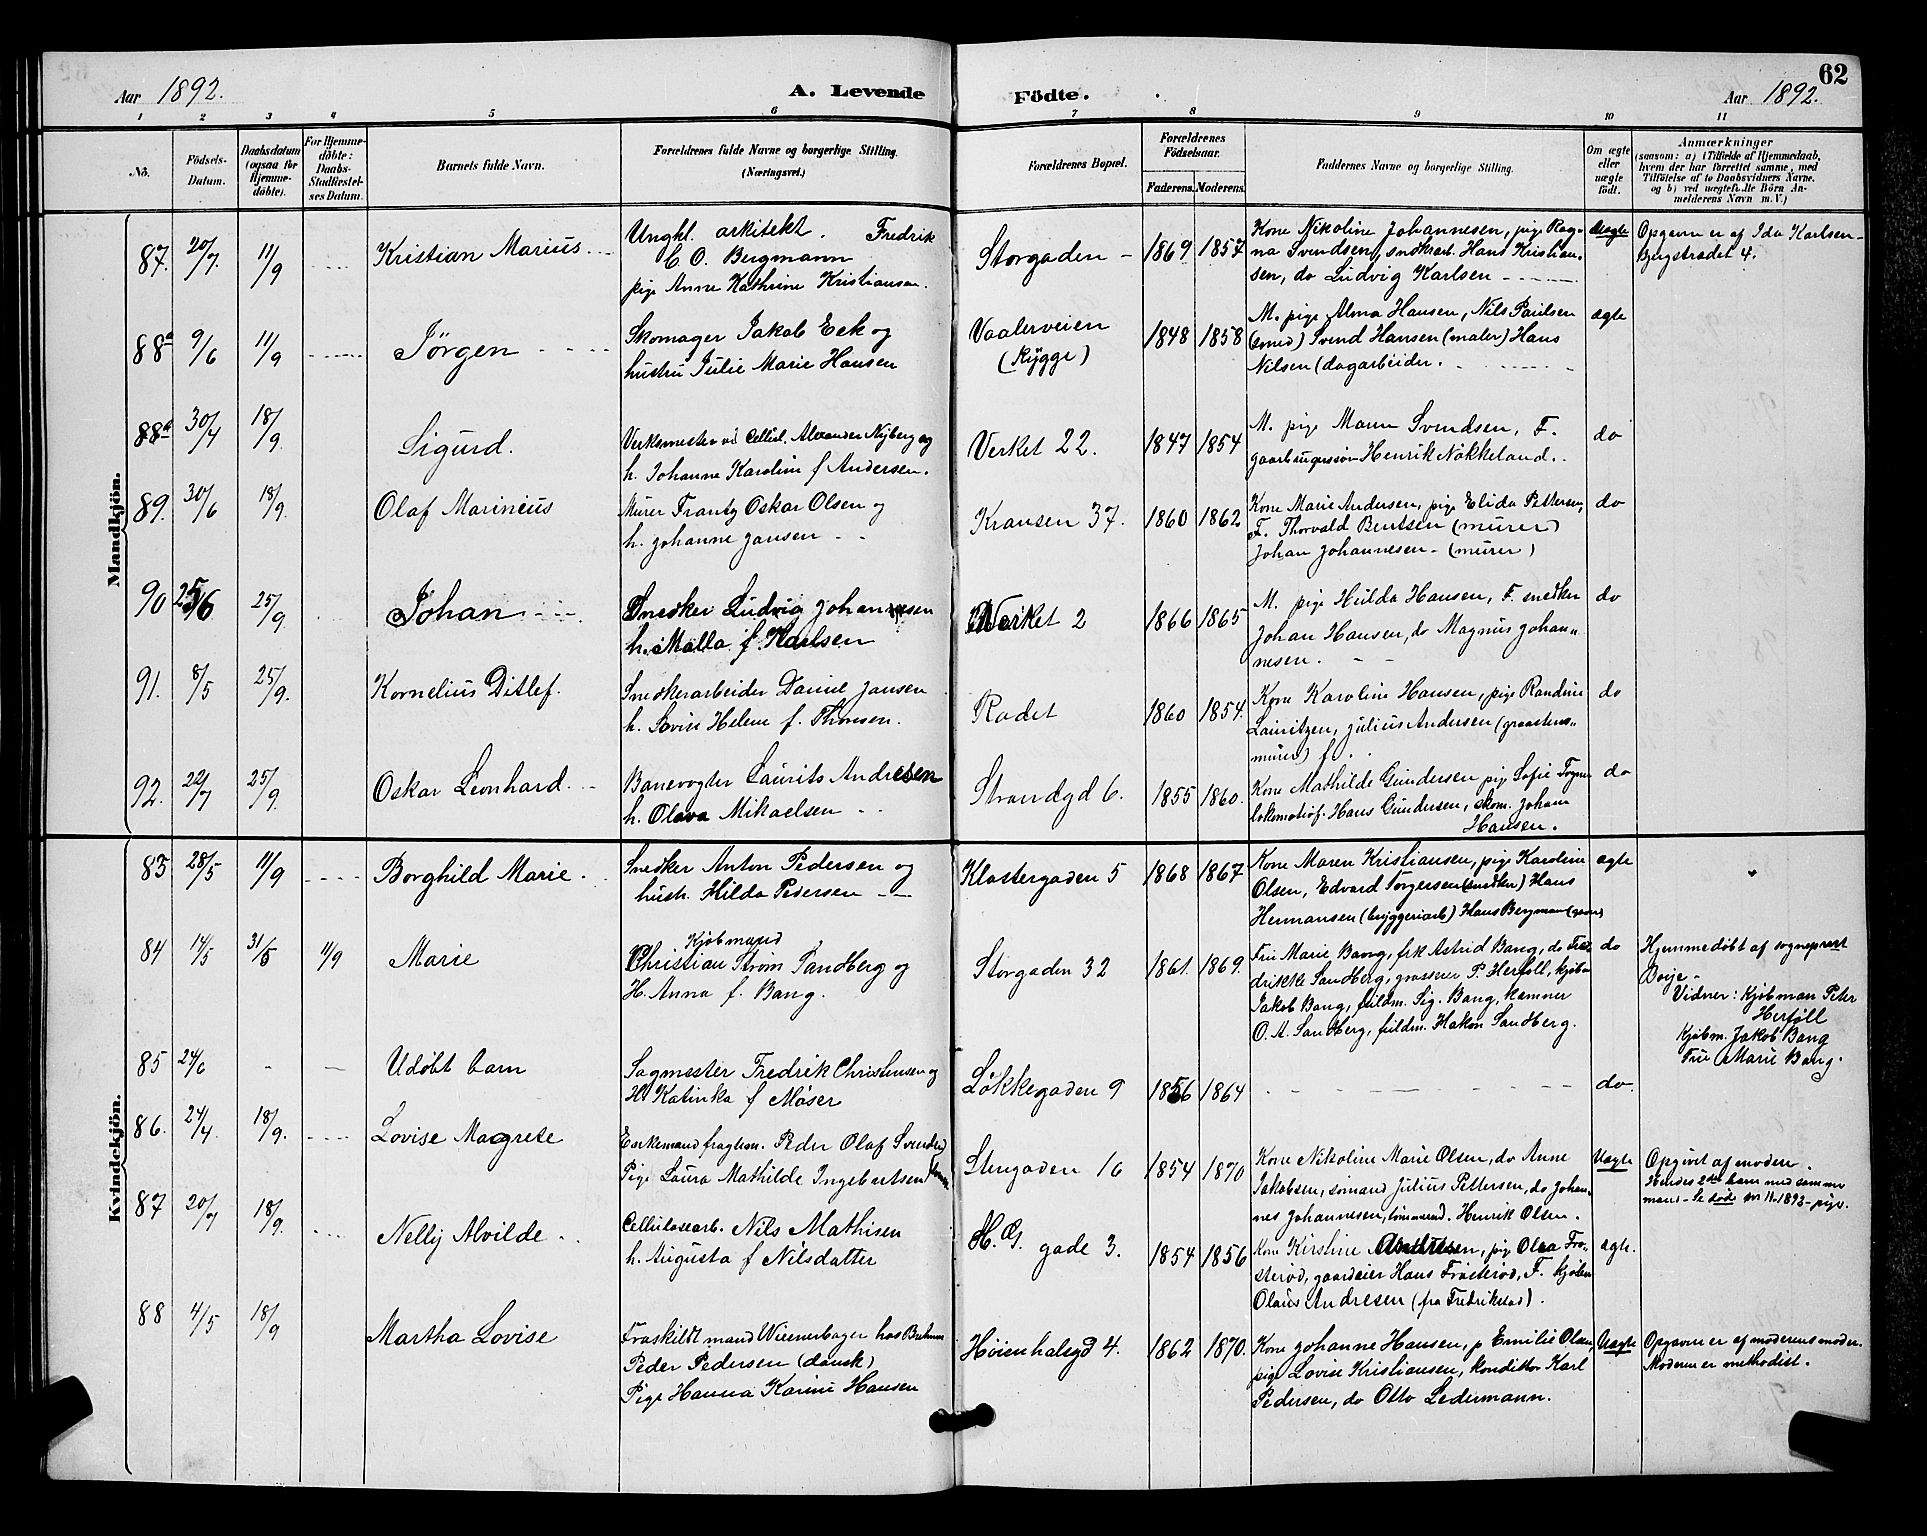 62
Aar 1892.
A. Levende Födte.
Aar 1892.
1 2 3 4 5 6 7 8 9 10 11
No.
Födsels-Datum.
Daabsdatum (ogsaa for Hjemme-döbte).
For Hjemme-döbte: Daabs-Stadfæstel-ses Datum.
Barnets fulde Navn.
Forældrenes fulde Navne og borgerlige Stilling.
(Næringsvei.)
Forældrenes Bopæl.
Forældrenes Födselsaar.
Faderens. Moderens.
Faddernes Navne og borgerlige Stilling.
Om ægte eller uægte födt.
Anmærkninger
(saasom: a) i Tilfælde af Hjemmedaab,
hvem der har forrettet samme, med
Tilföielse af to Daabsvidners Navne,
og b) ved uægtefødte Börn An-
melderens Navn m. V.)
Mandkjön.
87. 20/7. 11/9 Kristian Marius
Ungkl. arkitekt. Fredrik
C. O. Bergmann
pige Anne Kathrine Kristiansen.
Storgaden 1869 1857
Kone Nikoline Johannesen, pige Rag-
na Svendsen, snedkerarb. Hans Kristian-
sen, do Ludvig Karlsen
Uægte
Opgaven er af Ida Karlsen
Bergstrædet 4.
88a 9/6 11/9 Jörgen
Skomager Jakob Eek og
hustru Julie Marie Hansen
Vaalerveien
(Rygge)
1848 1858
M. pige Alma Hansen, Nils Paulsen
(smed) Svend Hansen (maler) Hans
Nilsen (dagarbeider.
ægte
88a 30/4 18/9. Sigurd.
Verksmester ved Cellul. Alexander Nyberg og
h. Johanne Karoline f Andersen.
Verket 22. 1847 1854
M. pige Maren Svendsen, F.
Henrik Nökkeland.
do
89. 30/6 18/9. Olaf Marinius
Murer Frantz Oskar Olsen og
h. Johanne Jansen
Kransen 37. 1860 1862
Kone Marie Andersen, pige Elida Pettersen,
F. Thorvald Bentsen (murer)
Johan Johannesen - (murer)
do
90 25/6 25/9 Johan
Snedker Ludvig Johannesen
h. Malla f. Karlsen
Verket 2 1866 1865
M. pige Hulda Hansen, F. snedker
Johan Hansen, do Magnus Johan-
nesen.
do
91. 8/5 25/9. Kornelius Ditlef.
Snedkerarbeider Daniel Jansen
h. Lovise Helene f. Thomsen.
Rådet 1860 1854.
Kone Karoline Hansen, pige Randine
Lauritzen, Julius Andersen (graastens-
murer) f.
do
92. 22/7 25/9. Oskar Leonhard.
Banevogter Laurits Andresen
h. Olava Mikaelsen
Strandgd 6. 1855 1860.
Kone Mathilde Gundersen pige Sofie
lokomotivf. Hans Gundersen, skom. Johan
Hansen.
do
Kvindekjön.
83 28/5 11/9 Borghild Marie.
Snedker Anton Pedersen og
hustr. Hilda Pedersen
Klostergaden 5 1868 1867
Kone Maren Kristiansen, pige Karoline
Olsen, Edvard Torgersen (snedker) Hans
Hermansen (bryggeriarb) Hans Bergman
ægte
84 14/5 31/5 11/9 Marie
Kjöbmand
Christian Ström Sandberg og
H. Anna f. Bang.
Storgaden 32 1861. 1869.
Fru Marie Bang, frk Astrid Bang, do Fre-
drikke Sandberg, grosserer P. Herföll, kjöbm
Jakob Bang, fuldm. Sig. Bang, kæmner
O. A. Sandberg, fuldm. Hakon Sandberg.
do
Hjemmedöbt af sogneprest
Boije -
Vidner: Kjöbman Peter
Herföll
Kjöbm. Jakob Bang
Frue Marie Bang.
85 24/6 Udöbt barn
Sagmester Fredrik Christensen og
H. Katinka f Möser
Lökkegaden 9 1856 1864
do.
86. 24/4 18/9. Lovise Magrete
Enkemand Peder Olaf Svendsen
Pige Laura Mathilde Ingebertsen
Stengaden 16 1854 1870
Kone Nikoline Marie Olsen, do Anne
Jakobsen, sömand Julius Pettersen, do Johan-
nes Johannesen, tömmermd. Henrik Olsen.
Uægte
Opgivet af modere.
Hendes 2det barn med samme
mand - Se döde nr 11. 1893 - pige.
87 20/7 18/9. Nelly Alvilde
Cellulosearb. Nils Mathisen
h. Augusta f Nilsdatter
H. G. gade 3. 1854 1856
Kone Kirstine Andresen, pige Olea Fro-
steröd, gaardeier Hans Frösteröd, F. kjöbm
Olaus Andresen (fra Fredrikstad).
ægte.
88 4/5 18/9 Martha Lovise
Fraskildt mand Wienerbager hos
Peder Pedersen (dansk)
Pige Hanna Karine Hansen
Höienhalsgd 4. 1862 1870.
Kone Johanne Hansen, p Emilie Olsen,
pige Lovise Kristiansen, konditor Karl
Pedersen, do Otto Ledermann.
Uægte
Opgaven er af moderens moder.
Moderen er methodist.